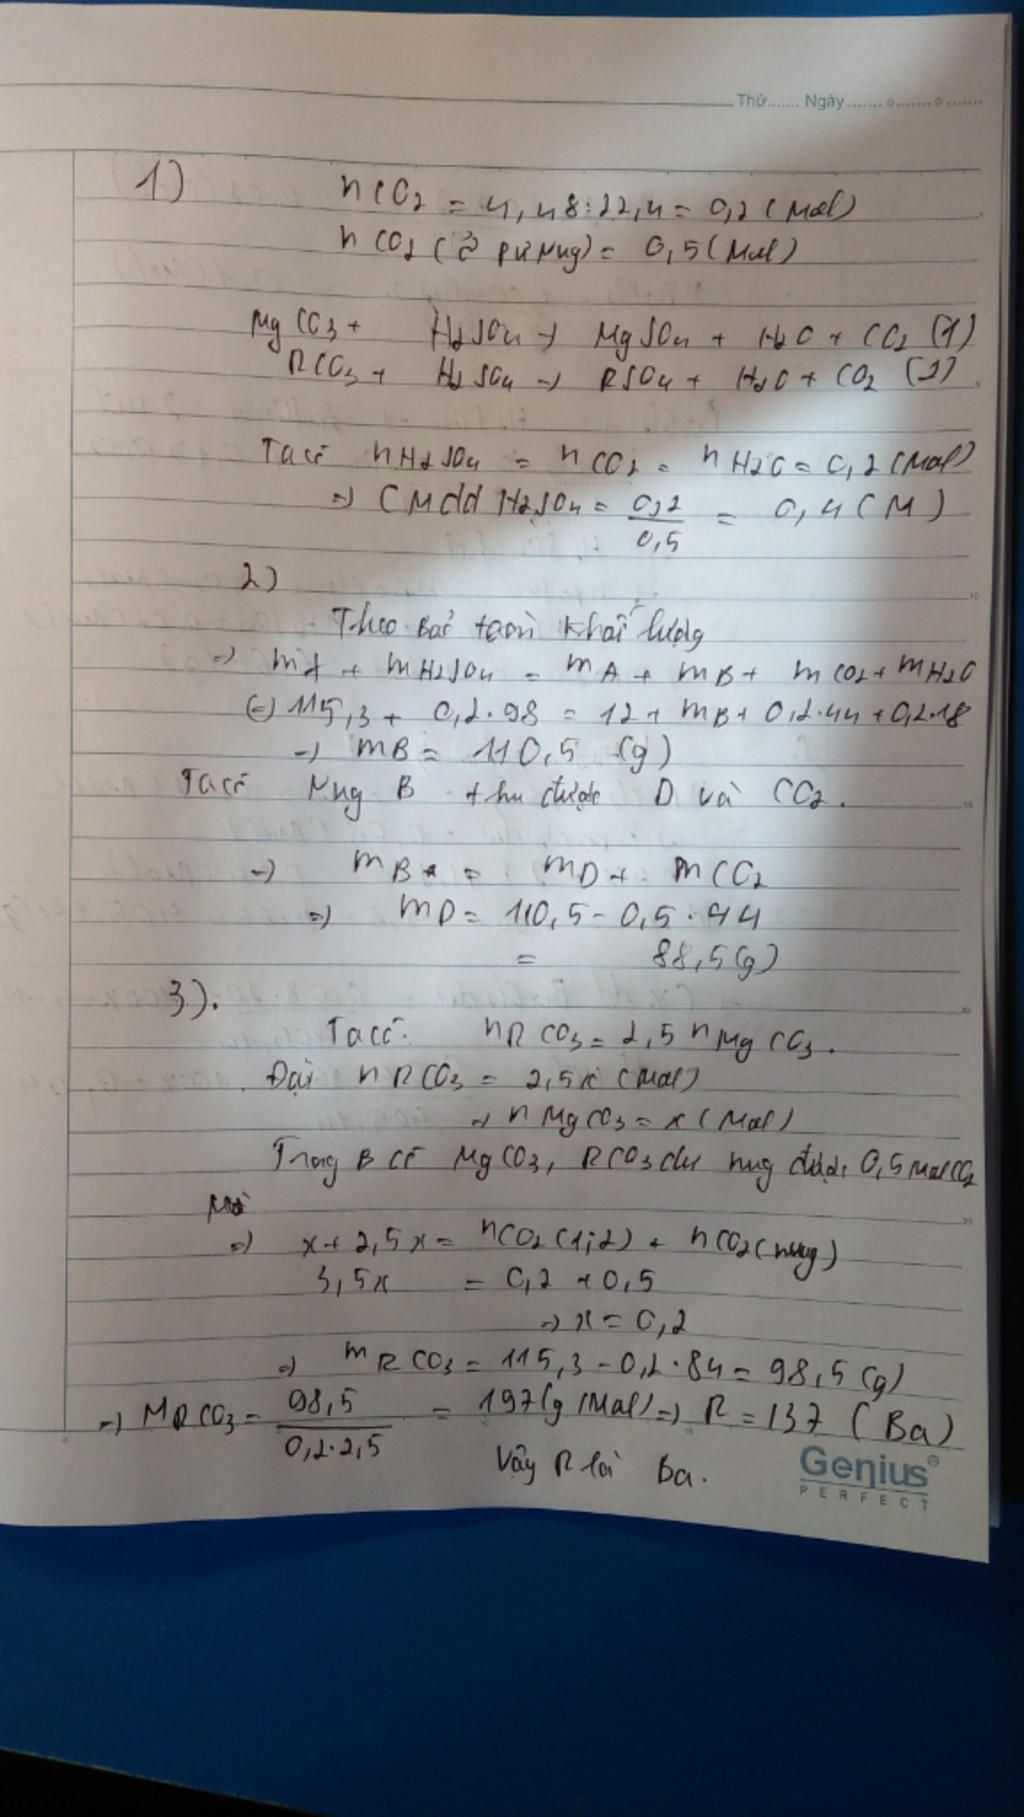 Thứ....... Ngày ....... o ....... o .......
1) nCO2 = 4,48:22,4 = 0,2 (mol)
nCO2 (ở pư nung) = 0,5 (mol)
MgCO3 + H2SO4 → MgSO4 + H2O + CO2 (1)
RCO3 + H2SO4 → RSO4 + H2O + CO2 (2)
Ta có nH2SO4 = nCO2 = nH2O = 0,2 (mol)
=> CMdd H2SO4 = 0,2/0,5 = 0,4 (M)
2)
Theo bảo toàn khối lượng
=> mA + mH2SO4 = mA + mB + mCO2 + mH2O
(=) 115,3 + 0,2.98 = 12 + mB + 0,2.44 + 0,2.18
→ mB = 110,5 (g)
Ta có Nung B thu được D và CO2.
→ mB = mD + mCO2
=> mD = 110,5 - 0,5.44
= 88,5 (g)
3).
Ta có: nRCO3 = 2,5 nMgCO3.
Đặt nRCO3 = 2,5x (mol)
→ nMgCO3 = x (mol)
Trong B có MgCO3, RCO3 dư nung được 0,5 mol CO2
=> x + 2,5x = nCO2(1;2) + nCO2(nung)
3,5x = 0,2 + 0,5
→ x = 0,2
=> mRCO3 = 115,3 - 0,2.84 = 98,5 (g)
→ MRCO3 = 98,5/0,2.2,5 = 197 (g/mol) => R = 137 (Ba)
Vậy R là Ba.
Genius®
PERFECT